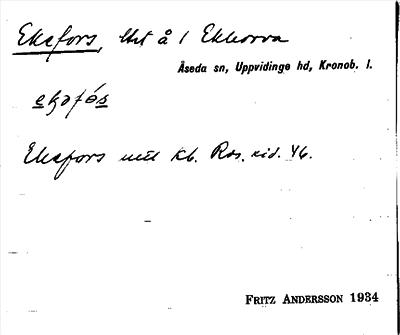 Ekefors, lht å 1 Ekhorva
Åseda sn, Uppvidinge hd, Kronob. l.
Ekefors mtl Kb. Ros. sid. 46.
FRITZ ANDERSSON 1934